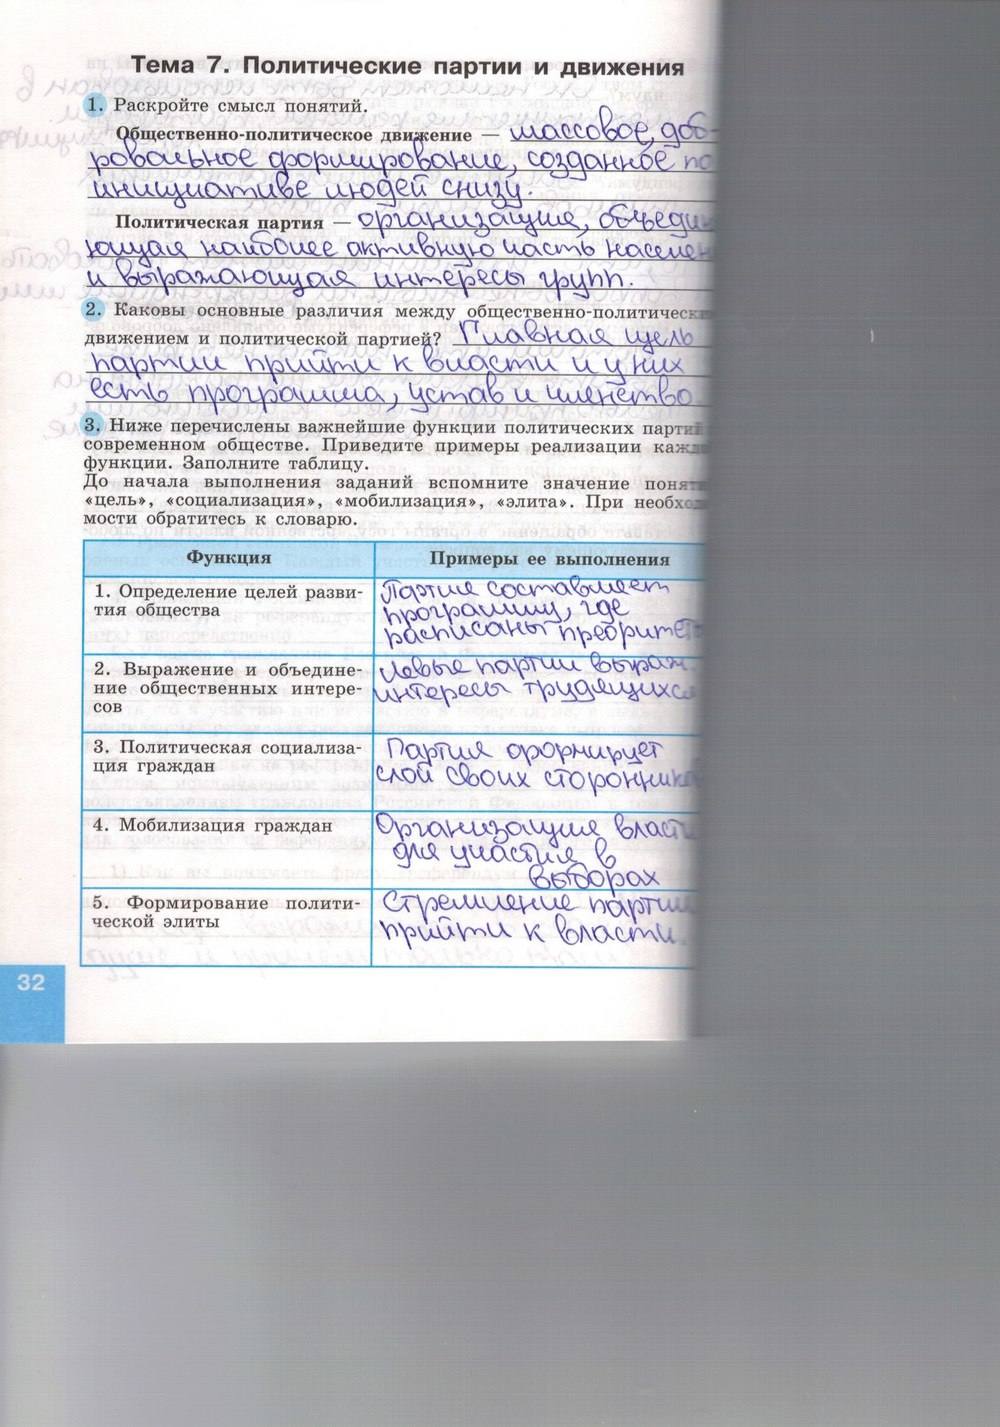 Тема 7. Политические партии и движения
1. Раскройте смысл понятий.
Общественно-политическое движение — массовое, доб-
ровольное формирование, созданное по
инициативе людей снизу.
Политическая партия — организация, объедин
яющая наиболее активную часть населен
и выражающая интересы групп.
2. Каковы основные различия между общественно-политически
движением и политической партией? Главная цель
партии прийти к власти и у них
есть программа, устав и членство.
3. Ниже перечислены важнейшие функции политических партий
современном обществе. Приведите примеры реализации кажд
функции. Заполните таблицу.
До начала выполнения заданий вспомните значение понят
«цель», «социализация», «мобилизация», «элита». При необхо
мости обратитесь к словарю.
Функция Примеры ее выполнения
1. Определение целей разви-
тия общества
Партия составляет
программу, где
расписаны преоритеты
2. Выражение и объедине-
ние общественных интере-
сов
Левые партии выраж.
интересы трудящихся
3. Политическая социализа-
ция граждан
Партия формирует
слой своих сторонников
4. Мобилизация граждан
Организация власти
для участия в
выборах
5. Формирование полити-
ческой элиты
Стремление партии
прийти к власти.
32